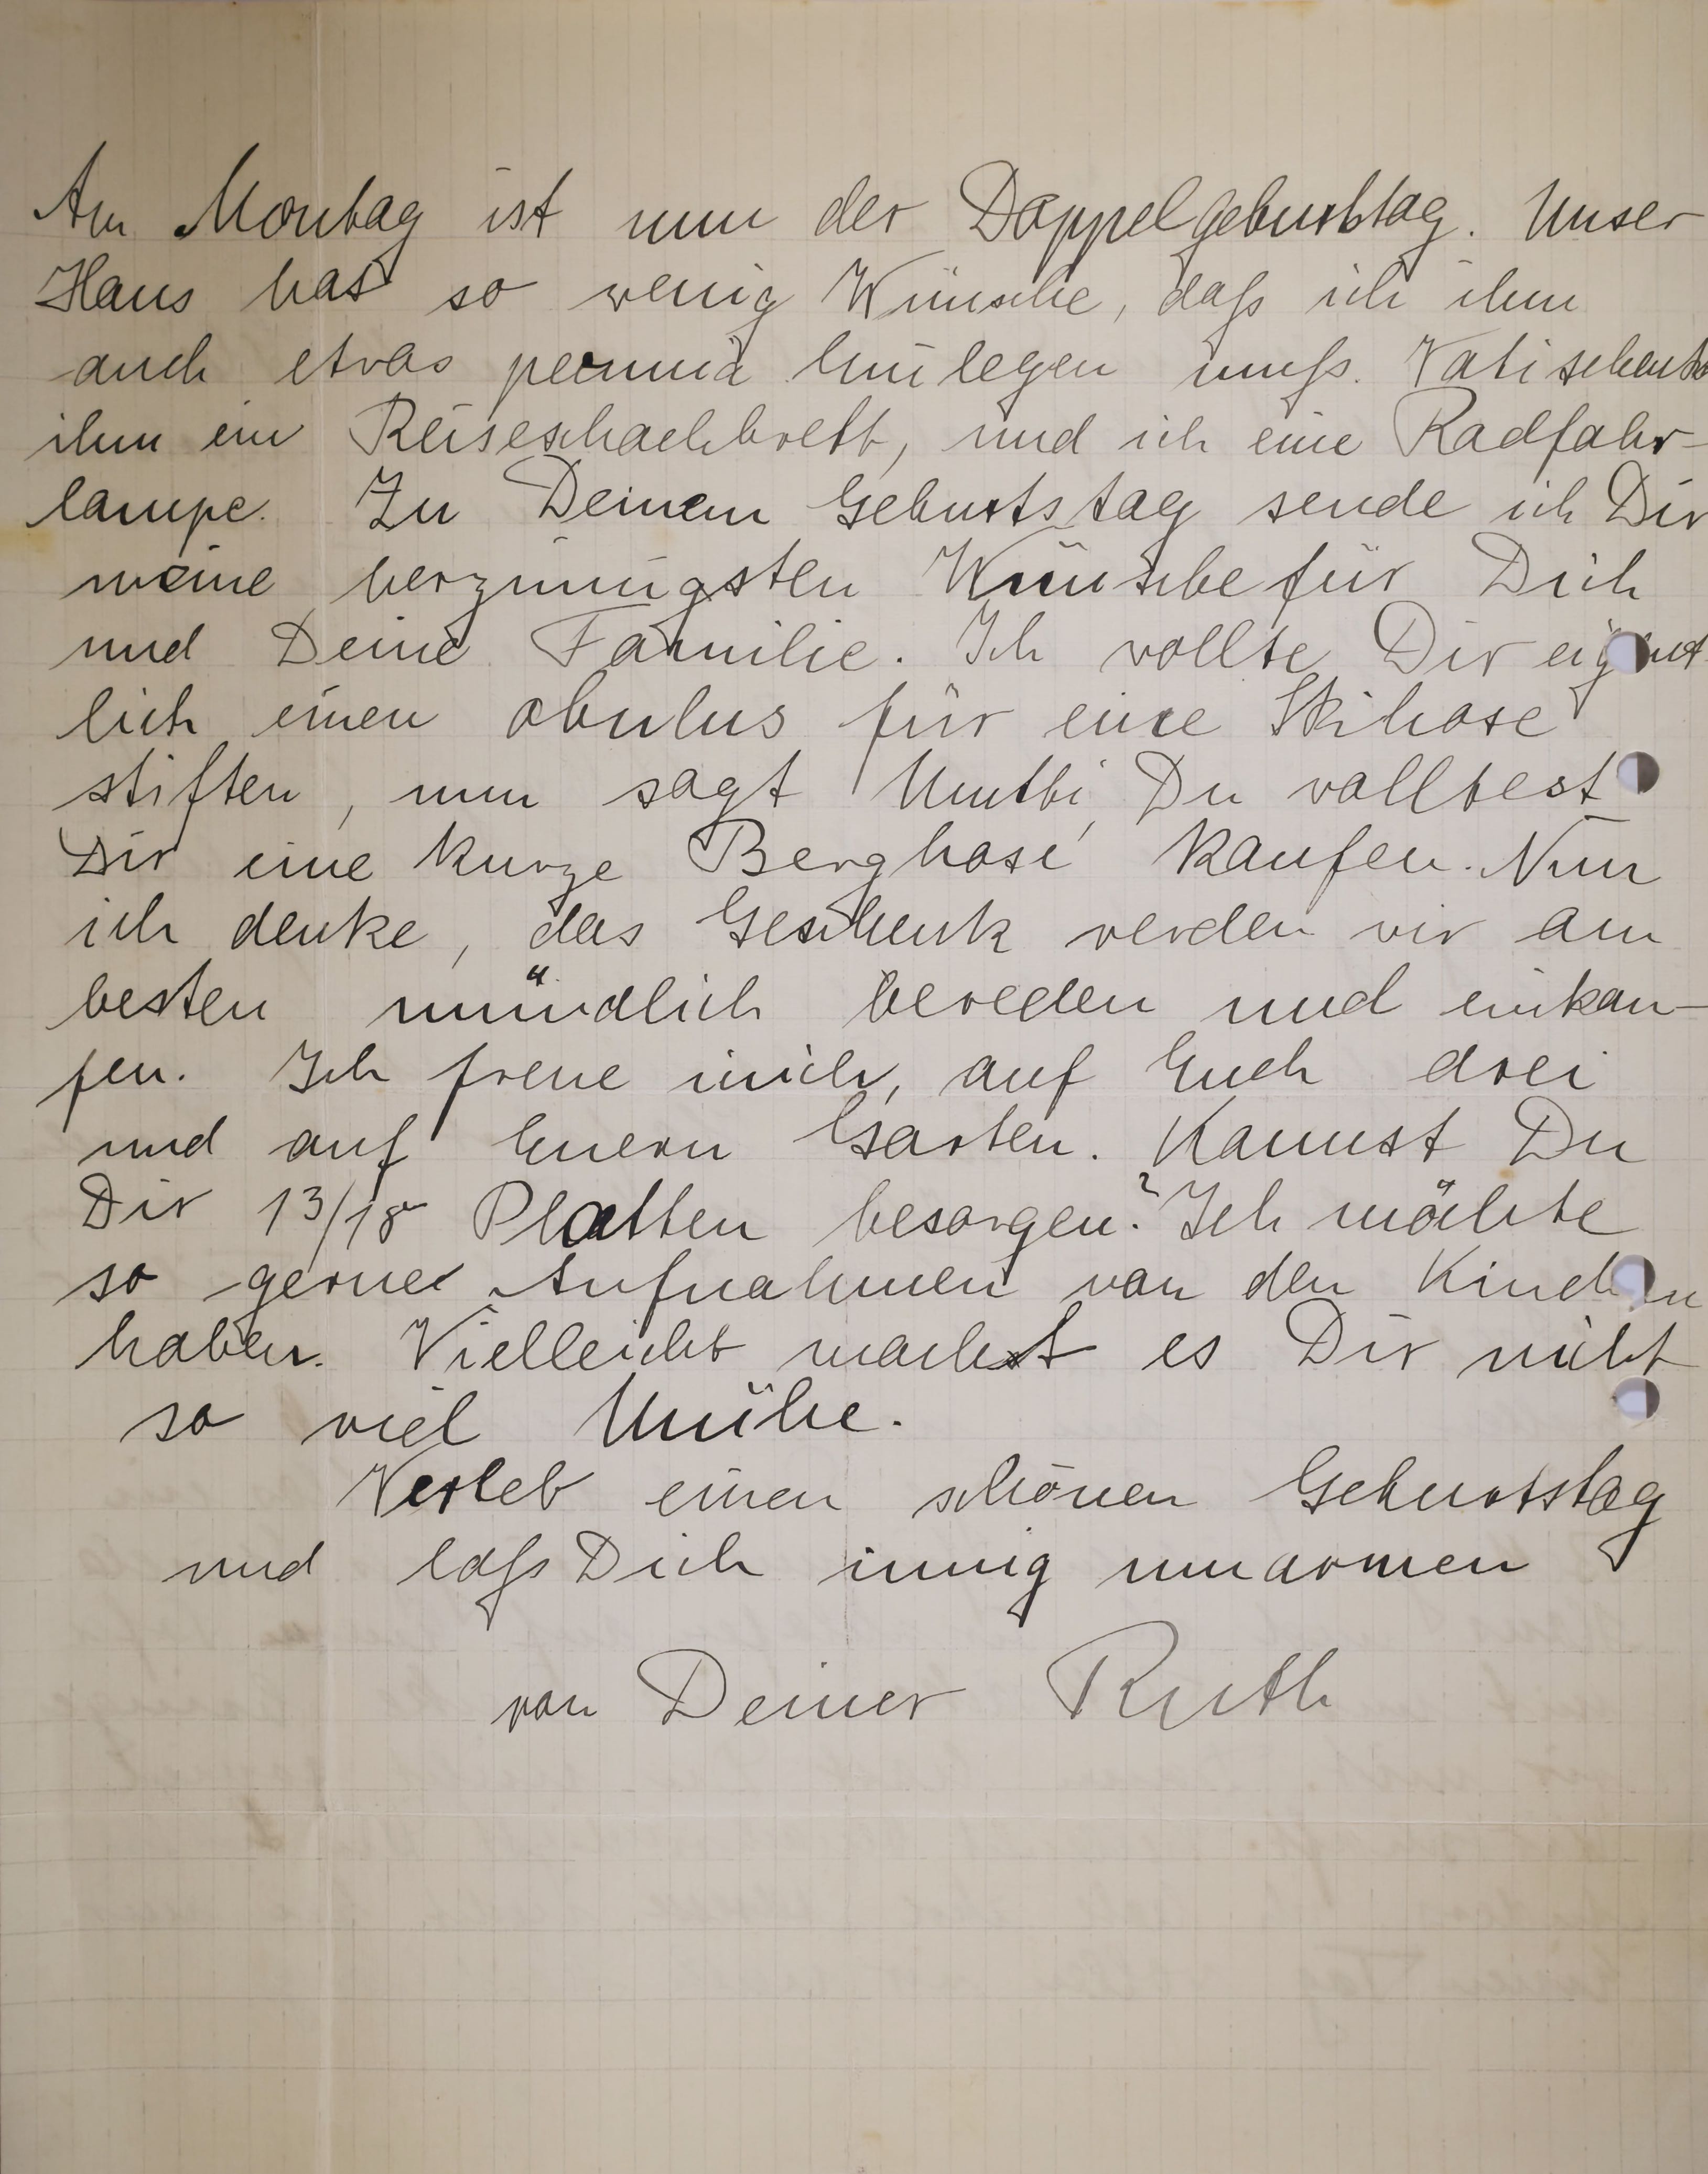 Am Montag ist nun der Doppelgeburtstag. Unser
Hans hat so wenig Wünsche, daß ich ihm
auch etwas pecunia hinlegen muß. Vati schenkt
ihm ein Reiseschachbrett, und ich eine Radfahr-
lampe. Zu Deinem Geburtstag sende ich Dir
meine herzinnigsten Wünsche für Dich
und Deine Familie. Ich wollte Dir eigent
lich einen obulus für eine Skihose
stiften, nun sagt Mutti, Du wolltest
Dir eine kurze Berghose kaufen. Nun
ich denke, das Geschenk werden wir am
besten mündlich bereden und einkau-
fen. Ich freue mich, auf Euch drei
und auf Euern Garten. Kannst Du
Dir 13/18 Platten besorgen? Ich möchte
so gerne Aufnahmen von den Kindern
haben. Vielleicht machst es Dir nicht
so viel Mühe.
Verleb einen schönen Geburtstag
und laß Dich innig umarmen
von Deiner Ruth